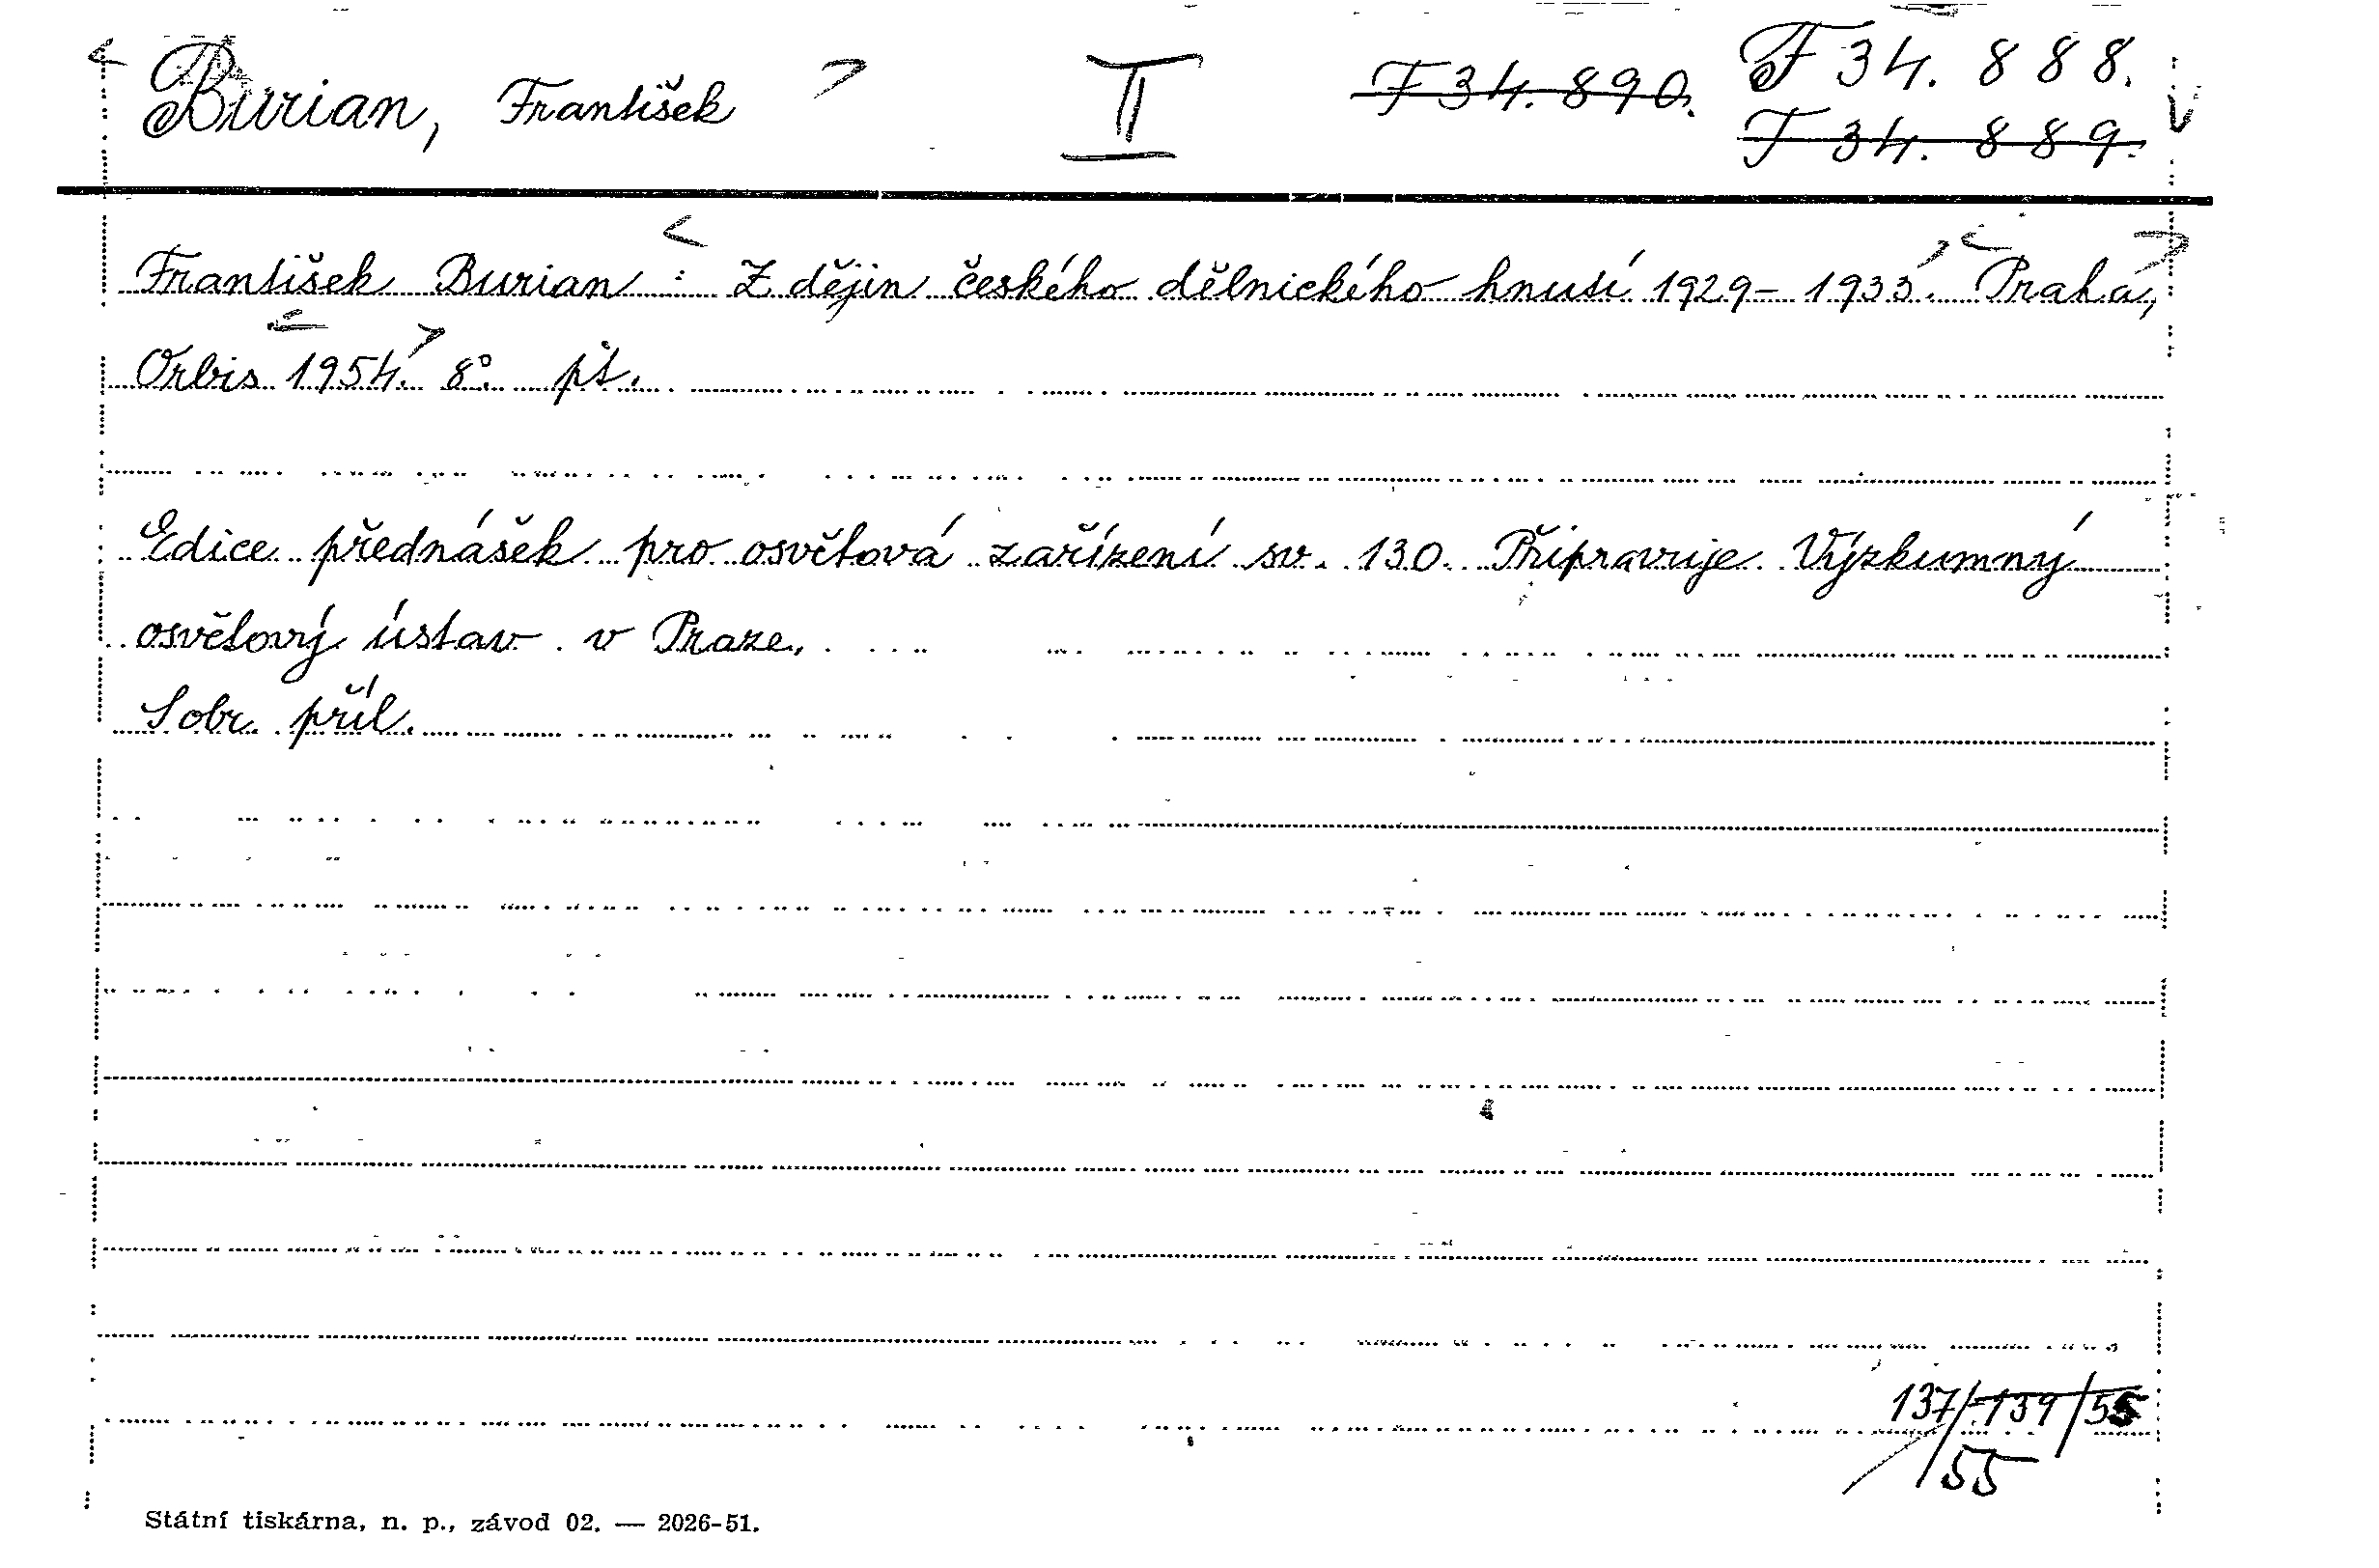 Burian, František II F 34.890. F 34.888.
F 34.889.
František Burian : Z dějin českého dělnického hnutí 1929-1933. Praha,
Orbis 1954. 8°. př.
Edice přednášek pro osvětová zařízení sv. 130. Připravuje Výzkumný
osvětový ústav v Praze.
S obr. příl.
137/-139/55
/55
Státní tiskárna, n. p., závod 02. — 2026-51.